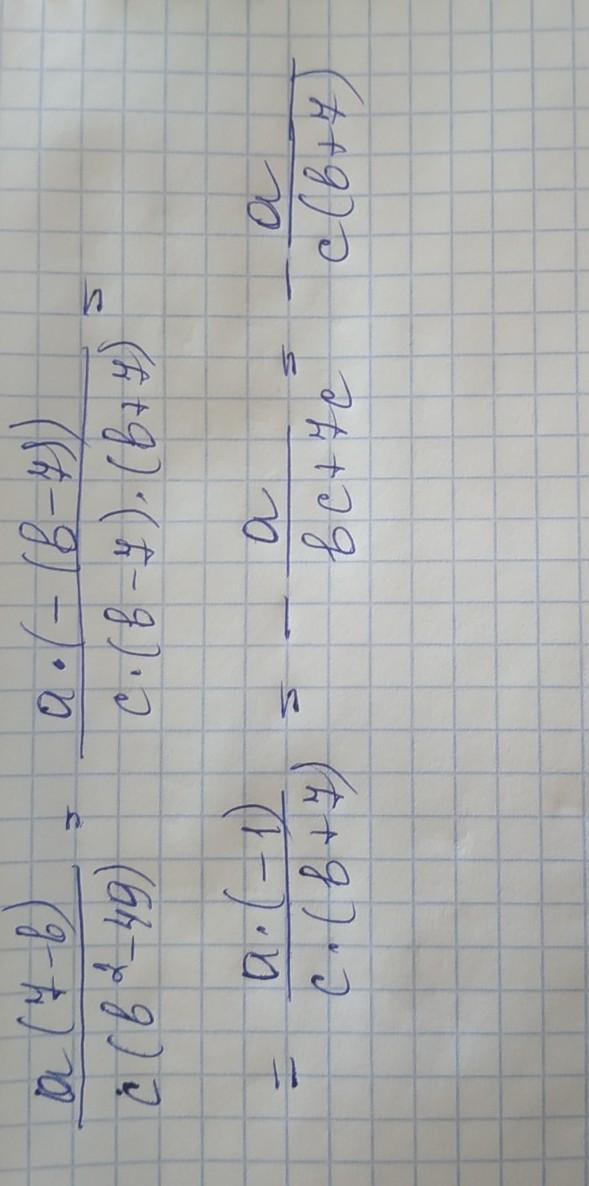 a(7-b)/c(b²-49) = a·(-(b-7))/c·(b-7)·(b+7) =
= a·(-1)/c·(b+7) = - a/bc+7c = - a/c(b+7)